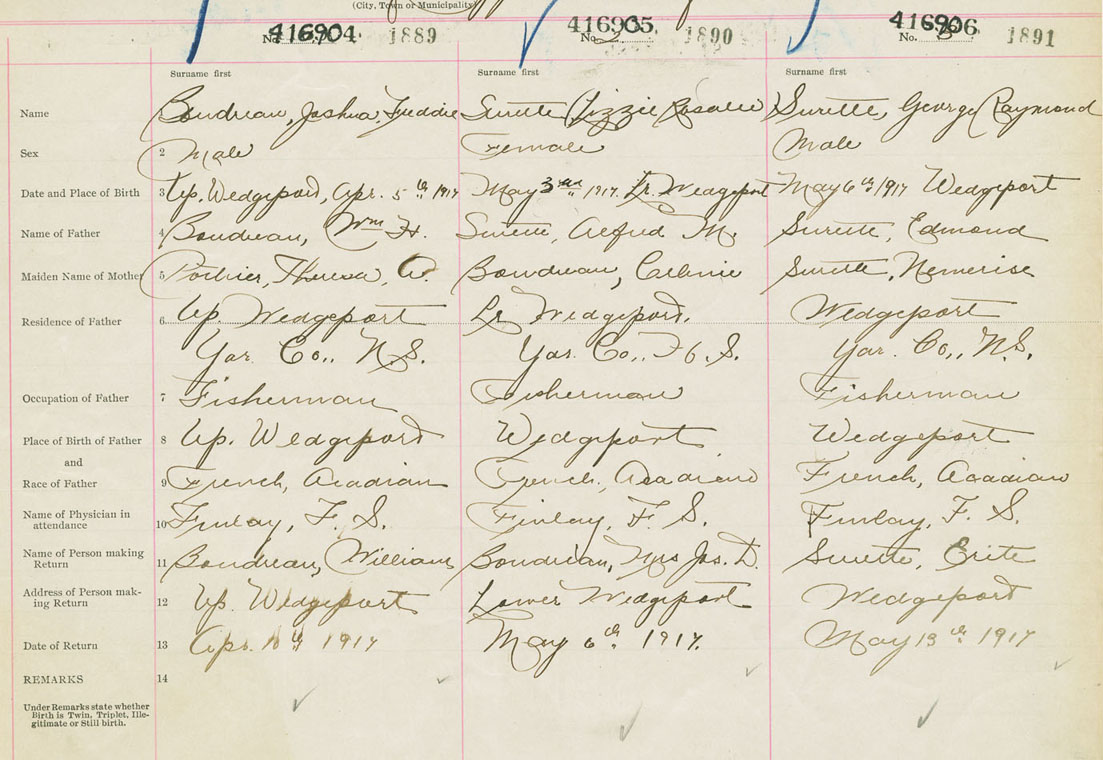 (City, Town or Municipality)
No. 416904 1889 No. 416905 1890 No. 416906 1891
Surname first Surname first Surname first
Name Boudreau, Joshua Freddie Surette Lizzie Rosalie Surette, George Raymond
Sex 2 Male Female Male
Date and Place of Birth 3 Up. Wedgeport, Apr. 5th 1917 May 3rd 1917. Lr. Wedgeport May 6th 1917 Wedgeport
Name of Father 4 Boudreau, Wm H. Surette, Alfred M. Surette, Edmond
Maiden Name of Mother 5 Pothier, Theresa, A. Boudreau, Celinie Surette, Nemerise
Residence of Father 6 Up. Wedgeport Lr Wedgeport. Wedgeport
Yar. Co., N.S. Yar. Co., N.S. Yar. Co., N.S.
Occupation of Father 7 Fisherman Fisherman Fisherman
Place of Birth of Father 8 Up. Wedgeport Wedgeport Wedgeport
and
Race of Father 9 French, Acadian French, Acadian French, Acadian
Name of Physician in
attendance 10 Finlay, F. S. Finlay, F. S. Finlay, F. S.
Name of Person making
Return 11 Boudreau, William Boudreau, Mrs Jos. D. Surette, Erite
Address of Person mak-
ing Return 12 Up. Wedgeport Lower Wedgeport Wedgeport
Date of Return 13 Apr. 10th 1917 May 6th. 1917. May 13th 1917
REMARKS 14
Under Remarks state whether
Birth is Twin, Triplet, Ille-
gitimate or Still birth.